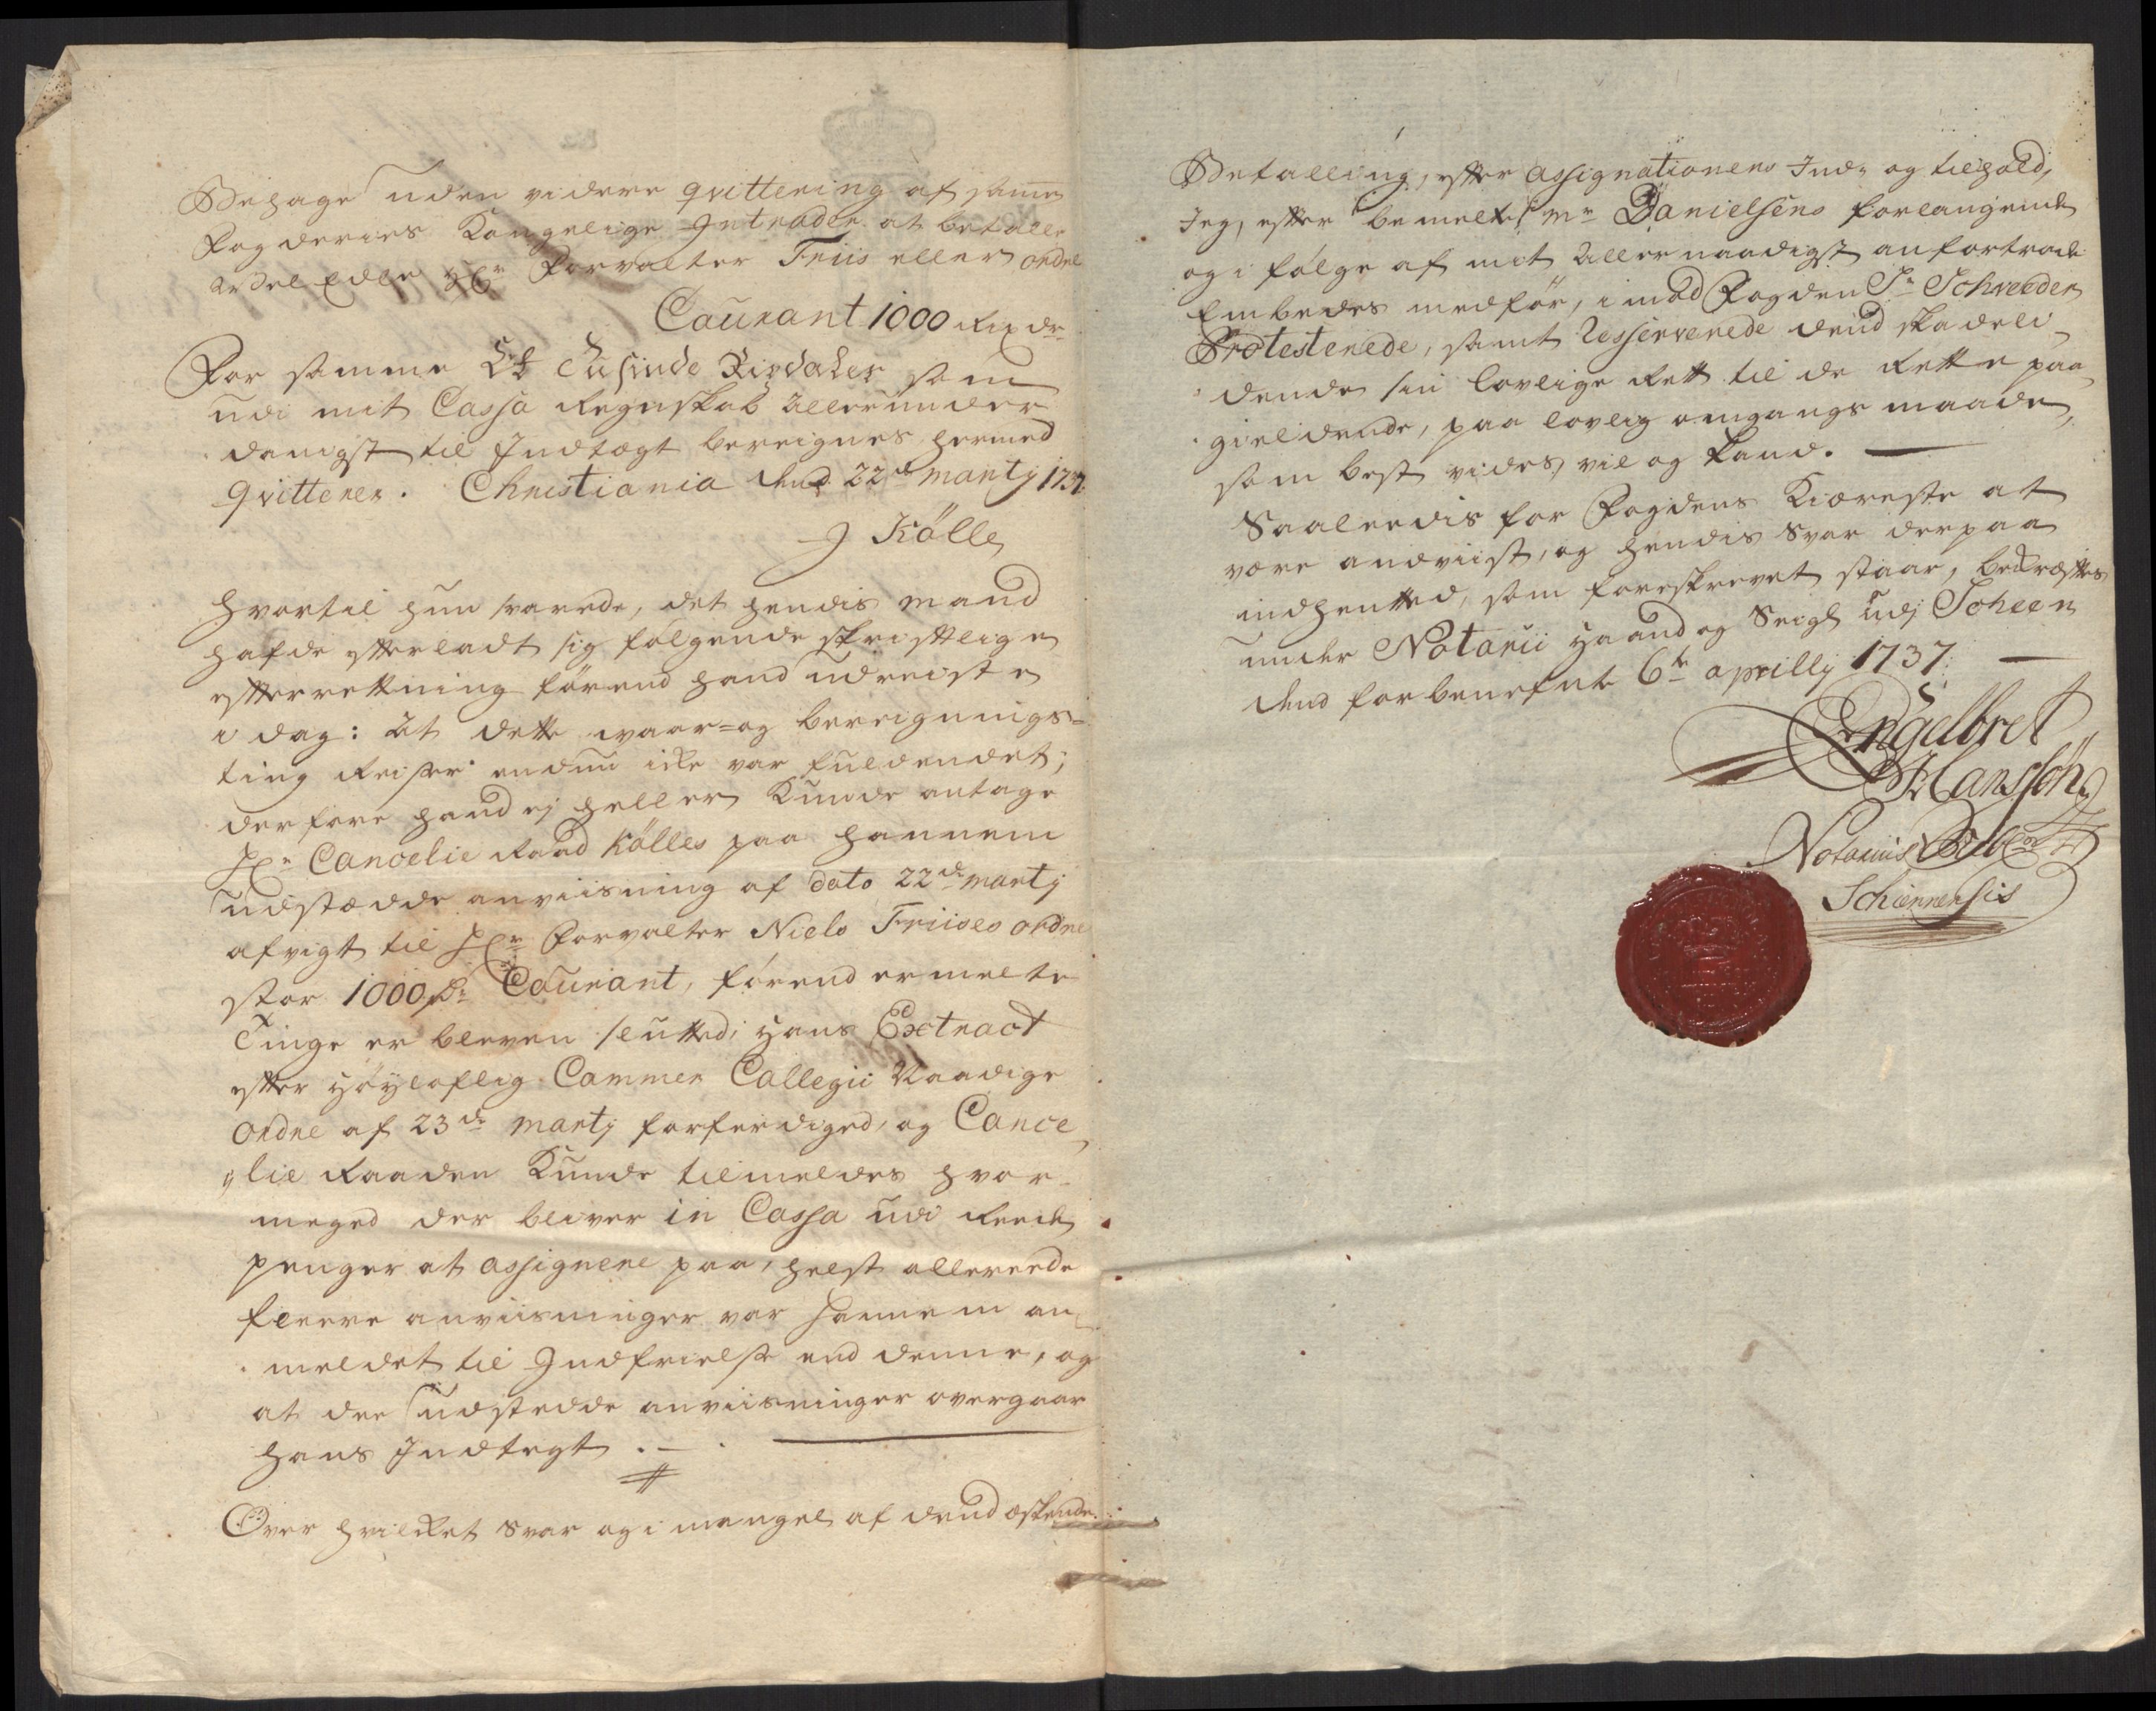 Behage uden videre qvittering af samme
Fogderies Kongelige Intrader at betalle
Velædle Hr Forvalter Friis eller ordre
Courant 1000 Rixdr
For samme Et Tusinde Rixdaler som
udi mit Cassa Regnskab Allerunder
danigst til Indtægt bereignes hermed
qvitterer. Christiania dend 22de Martij 1737.
J Kölle
Hvortil hun svarede, det hendis Mand
hafde efterladt sig følgende skriftlige
efterrettning førend hand udreiste
i dag: At dette waar= og bereignings=
ting Reiser endnu icke var fuldendet;
derfore hand ej heller Kunde antage
Hr Cancelie Raad Kölles paa hannem
udstædde anviisning af dato 22de Martij
afvigt til Hr Forvalter Niels Friises ordre
stor 1000 Rdr Courant, førend ermelte
Tinge er bleven slutted, hans Extract
efter Høyloflig Cammer Collegii Naadige
ordre af 23de Martij forferdiged, og Cance
lie Raaden Kunde tilmeldes hvor
meged der bliver in Cassa udi Reede
penger at assignere paa, helst allereede
fleere anviisninger var hannem an
meldet til Indfrielse end denne, og
at dee udstedde anviisninger overgaar
hans Indtegt.
Over hvilcket Svar og i mangel af dend æskende
Betalling, efter assignationens Ind- og tilhold,
Jeg, efter bemelte Mr Danielsens forlangende
og i følge af mit Allernaadigst anfortroede
Embedes medför, imod Fogden Sr Schreeder
Protesterede, samt Reserverede dend skadeli
dende sin lovlige Rett til de Rette paa
gieldende, paa lovlig omgangs maade,
som best vides, vil og kand.
Saaleedis for Fogdens Kiæreste at
være andviist, og hendis Svar derpaa
indhentted, som foreskrevet staar, bekræftes
under Notarii Haand og Seigl udj Scheen
dend forbenefnte 6te aprillij 1737.
Engelbret
Hanssøn
Notarius Publ:
Schiennensis